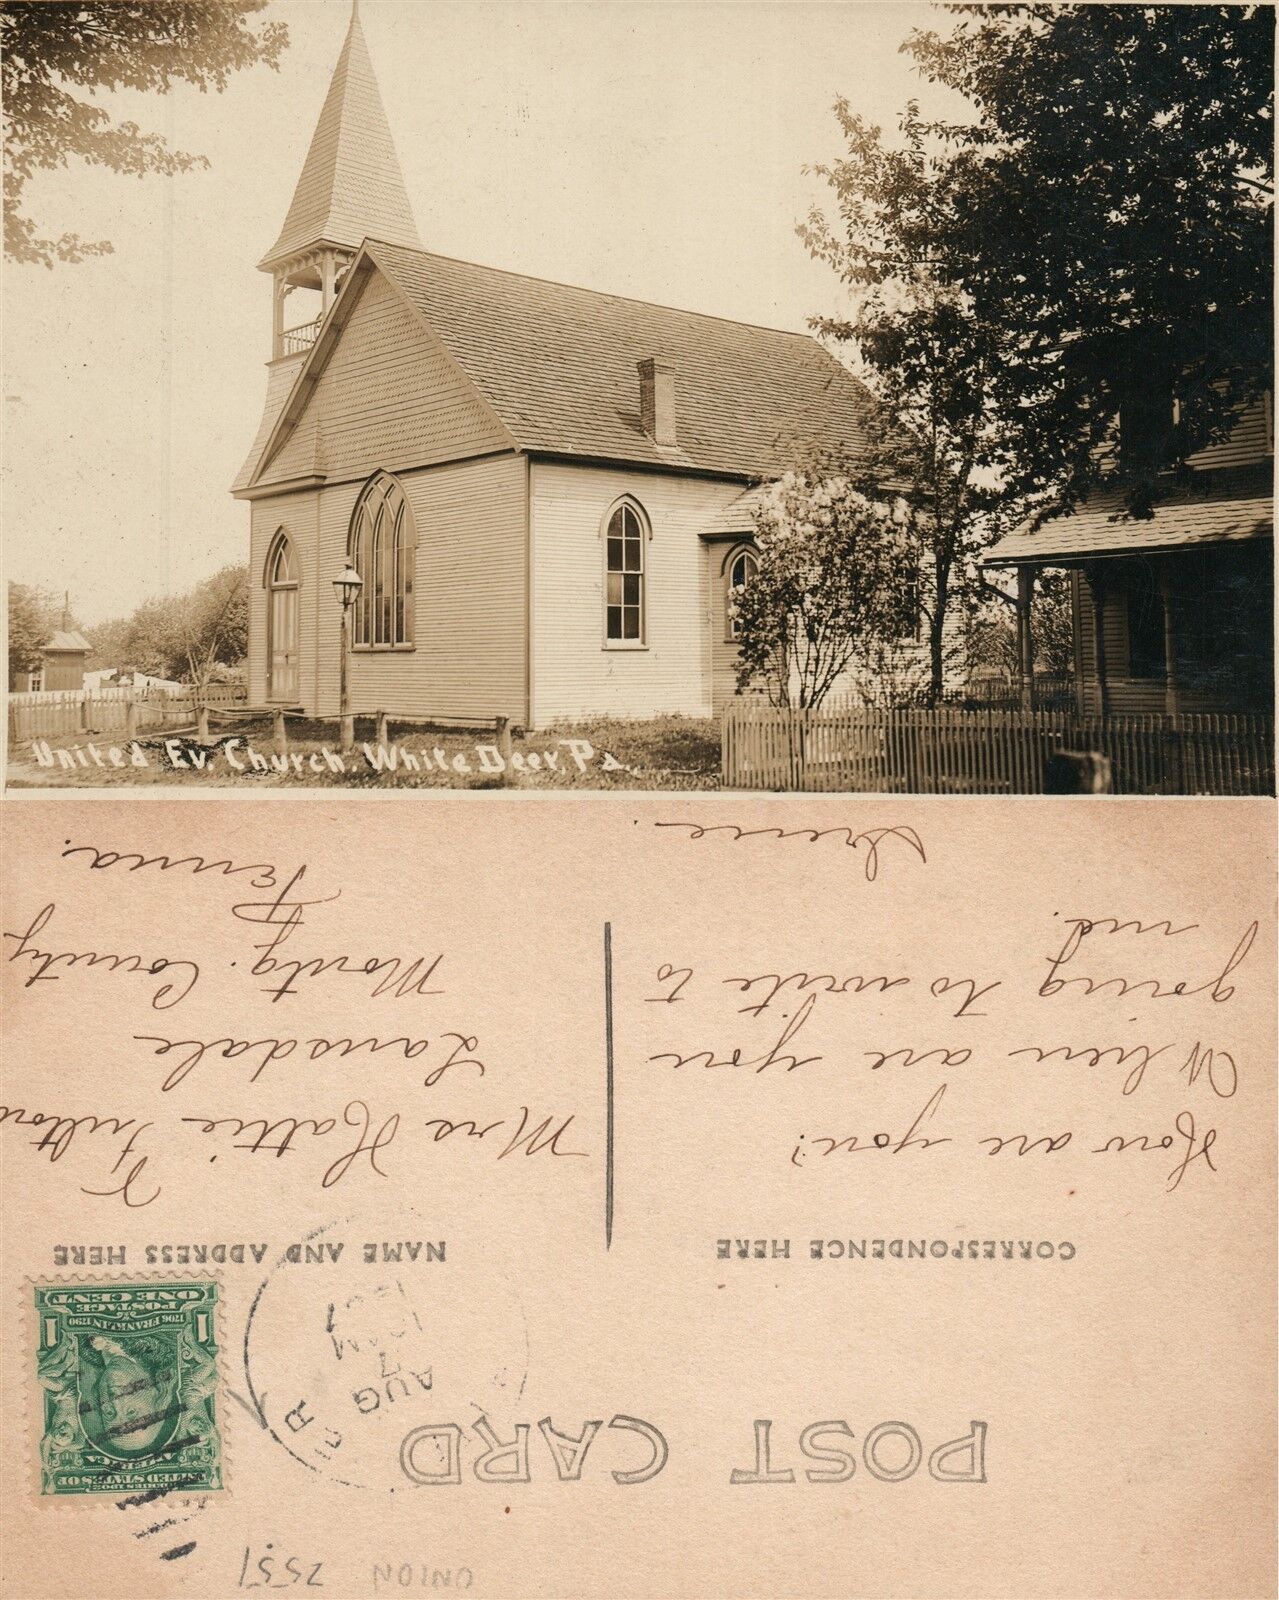 United Ev. Church. White Deer, Pa.
UNION 25.57
POST CARD
SERIES 1902
UNITED STATES OF
AMERICA
1706 FRANKLIN 1790
POSTAGE
1 ONE CENT 1
R
AUG
7
10 AM
1907
CORRESPONDENCE HERE
NAME AND ADDRESS HERE
How are you?
When are you
going to write to
me.
Irene.
Mrs Hattie Fulton
Lansdale
Montg. County
Penna.